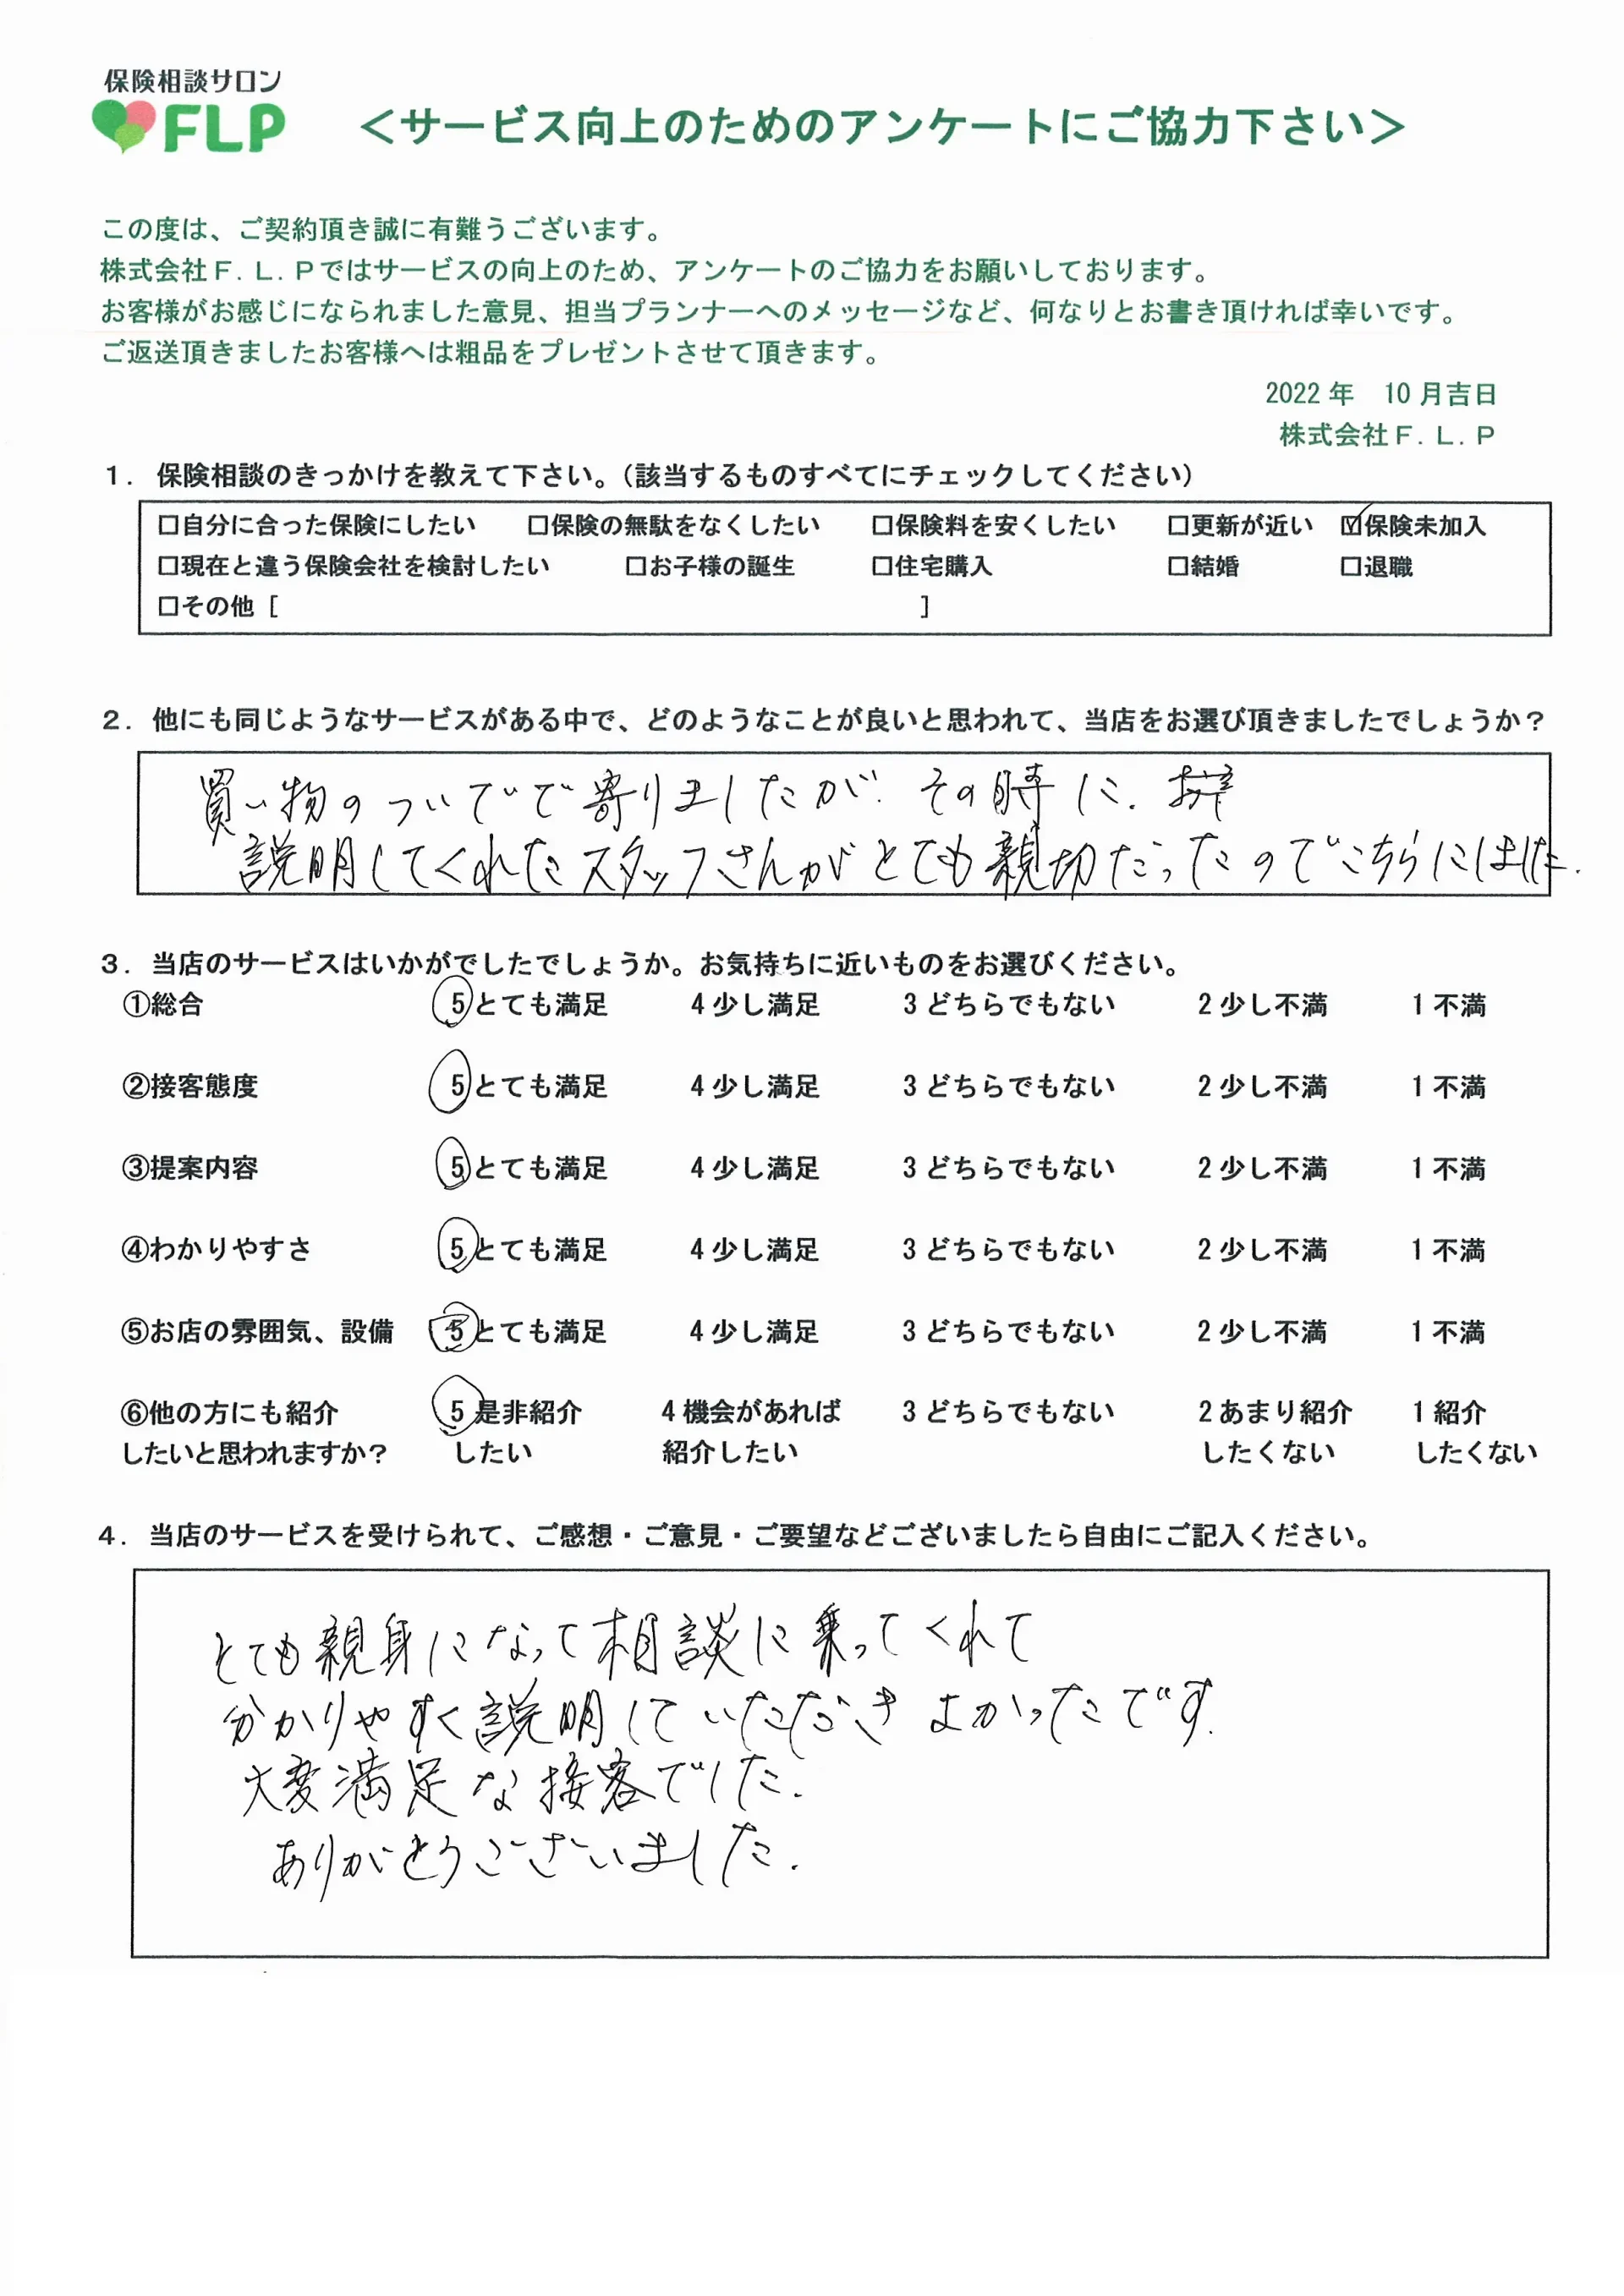 保険相談サロン
FLP
＜サービス向上のためのアンケートにご協力下さい＞
この度は、ご契約頂き誠に有難うございます。
株式会社Ｆ.Ｌ.Ｐではサービスの向上のため、アンケートのご協力をお願いしております。
お客様がお感じになられました意見、担当プランナーへのメッセージなど、何なりとお書き頂ければ幸いです。
ご返送頂きましたお客様へは粗品をプレゼントさせて頂きます。
2022 年　10 月吉日
株式会社Ｆ.Ｌ.Ｐ
１．保険相談のきっかけを教えて下さい。（該当するものすべてにチェックしてください）
□自分に合った保険にしたい　□保険の無駄をなくしたい　□保険料を安くしたい　□更新が近い　☑保険未加入
□現在と違う保険会社を検討したい　□お子様の誕生　□住宅購入　□結婚　□退職
□その他［　　　］
２．他にも同じようなサービスがある中で、どのようなことが良いと思われて、当店をお選び頂きましたでしょうか？
買い物のついでで寄りましたが、その時に、
説明してくれたスタッフさんがとても親切だったのでこちらにしました.
３．当店のサービスはいかがでしたでしょうか。お気持ちに近いものをお選びください。
①総合　5 とても満足　4 少し満足　3 どちらでもない　2 少し不満　1 不満
②接客態度　5 とても満足　4 少し満足　3 どちらでもない　2 少し不満　1 不満
③提案内容　5 とても満足　4 少し満足　3 どちらでもない　2 少し不満　1 不満
④わかりやすさ　5 とても満足　4 少し満足　3 どちらでもない　2 少し不満　1 不満
⑤お店の雰囲気、設備　5 とても満足　4 少し満足　3 どちらでもない　2 少し不満　1 不満
⑥他の方にも紹介　5 是非紹介　4 機会があれば　3 どちらでもない　2 あまり紹介　1 紹介
したいと思われますか？　したい　紹介したい　したくない　したくない
４．当店のサービスを受けられて、ご感想・ご意見・ご要望などございましたら自由にご記入ください。
とても親身になって相談に乗ってくれて
分かりやすく説明していただきよかったです.
大変満足な接客でした.
ありがとうございました.